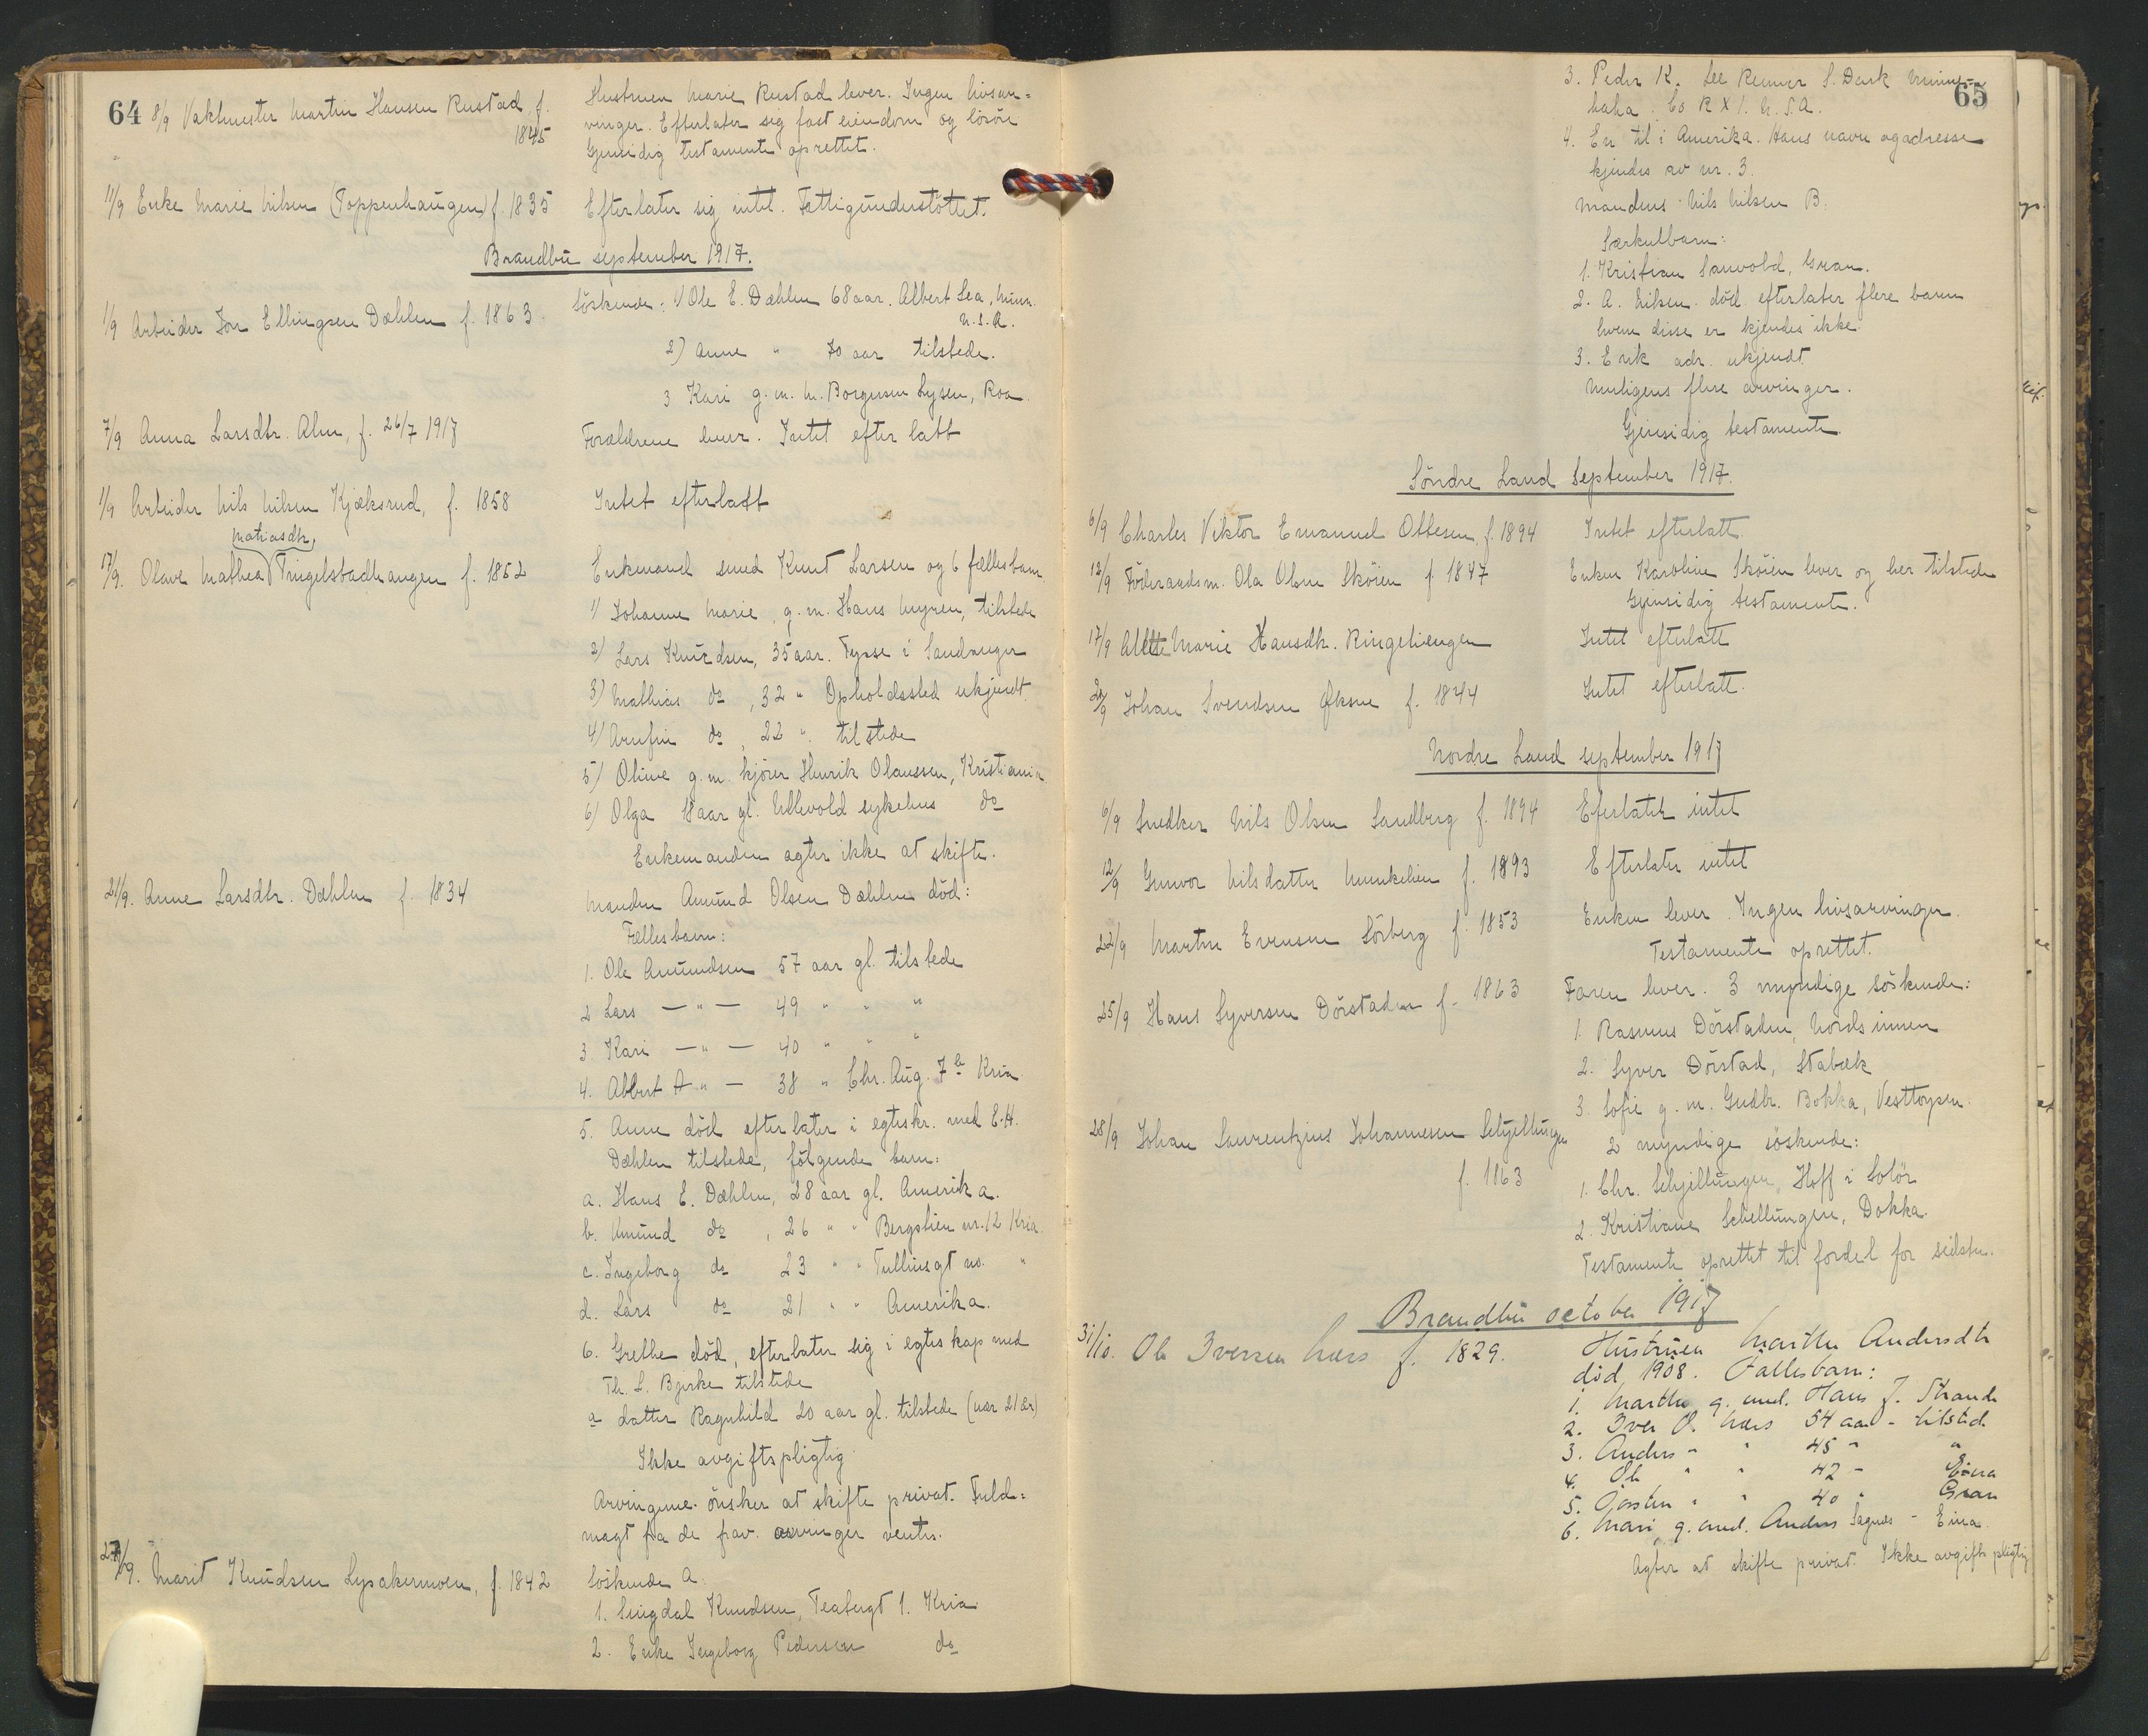 64
8/9 Vaktmester Martin Hansen Rustad f. 1845
Hustruen Marie Rustad lever. Ingen livsar=
vinger. Efterlater sig fast eiendom og lösöre
Gjensidig testamente oprettet.
11/9 Enke Marie Nilsen (Toppenhaugen) f. 1835
Efterlater sig intet. Fattigunderstöttet.
Brandbu september 1917.
1/9 Arbeider Jon Ellingsen Dæhlen f. 1863
Söskende: 1) Ole E. Dæhlen 68 aar. Albert Lea, Minn.
U.S.A.
2) Anne " 70 aar tilstede.
3 Kari g.m. M. Borgersen Lysen, Roa
7/9 Anna Larsdtr. Alm, f. 26/7 1917
Forældrene lever. Intet efterlatt
1/9 Arbeider Nils Nilsen Kjæksrud, f. 1858
Intet efterlatt
17/9. Olave Mathea Matiasdtr. Tingelstadhaugen f. 1852
Enkemand smed Knut Larsen og 6 fællesbarn
1) Johanne Marie, g.m. Hans Myren, tilstede
2) Lars Knudsen, 35 aar. Tysse i Samnanger
3) Mathias do, 32 " Opholdssted ukjendt.
4) Arnfin do, 22 " tilstede
5) Oline g.m. kjörer Henrik Olaussen, Kristiania
6) Olga 18 aar gl. Ullevold sykehus do
Enkemanden agter ikke at skifte.
21/9. Anne Larsdtr. Dæhlen f. 1834
Manden Amund Olsen Dæhlen död:
Fællesbarn:
1. Ole Amundsen 57 aar gl. tilstede
2 Lars — " — 49 " " "
3. Kari — " — 40 " " "
4. Albert A " — 38 " Chr. Aug. 7 b Kria
5. Anne död efterlater i egtesk. med E.H.
Dæhlen tilstede, fölgende barn:
a. Hans E. Dæhlen, 28 aar gl. Amerika.
b. Amund do, 26 " " Bergslien nr. 12 Kria
c. Ingeborg do 23 " " Tullinsgt no. "
d. Lars do 21 " " Amerika.
6. Grethe död, efterlater sig i egteskap med
Th. L. Bjerke tilstede
a datter Ragnhild 20 aar gl. tilstede (nær 21 år)
Ikke avgiftspligtig
Arvingene önsker at skifte privat. Fuld=
magt fra de frav. arvinger ventes.
27/9. Marit Knudsen Lysakermoen, f. 1842
Söskende A.
1. Singdal Knudsen, Teatergt 1. Kria
2. Enke Ingeborg Pedersen do
65
3. Peder K.
U.S.A.
4. En til i Amerika. Hans navn og adresse
kjendes av nr. 3.
Mandens Nils Nilsen B.
Særkulbarn:
1. Kristian Sanvold, Gran.
2. A. Nilsen. död efterlater flere barn
hvem disse er kjendes ikke.
3. Erik adr. ukjendt.
Muligens flere arvinger.
Gjensidig testamente.
Söndre Land September 1917.
6/9 Charles Viktor Emanuel Ottesen, f. 1894
Intet efterlatt.
12/9 Föderaadsm. Ola Olsen Sköien f. 1847
Enken Karoline Sköien lever og her tilstede
Gjensidig testamente.
17/9 Allette Marie Hansdtr. Ringeliengen
Intet efterlatt
2/9 Johan Svendsen Øksne f. 1844
Intet efterlatt.
Nordre Land september 1917
6/9 Snedker Nils Olsen Sandberg f. 1894
Efterlater intet
12/9 Gunvor Nilsdatter Munkelien f. 1893
Efterlater intet
22/9 Martin Evensen Sörberg f. 1853
Enken lever. Ingen livsarvinger.
Testamente oprettet.
25/9 Hans Syversen Dörstaden f. 1863
Faren lever. 3 myndige söskende:
1. Rasmus Dörstaden, Nordsinnen
2. Syver Dörstad, Stabæk
3. Sofie g.m. Gudbr. Bokka, Vesttorpen.
28/9 Johan Laurentzius Johannesen Schjellungen
f. 1863
2 myndige söskende:
1. Chr. Schjellungen, Hoff i Solör
2. Kristiane Schellungen, Dokka.
Testamente oprettet til fordel for sidste.
Brandbu october 1917
31/10. Ole Iversen Næs f. 1829.
Hustruen Marthe Andersdtr
död 1908. Fællesbarn:
1. Marthe g. med. Hans J. Strande
2. Iver O. Næs 54 aar - tilstede
3. Anders " " 45 " "
4. Ole " " 42 - Eina
5. Torsten " " 40 " Gran
6. Mari g. med. Anders Sagnes - Eina
Agter at skifte privat. Ikke avgiftspligtig